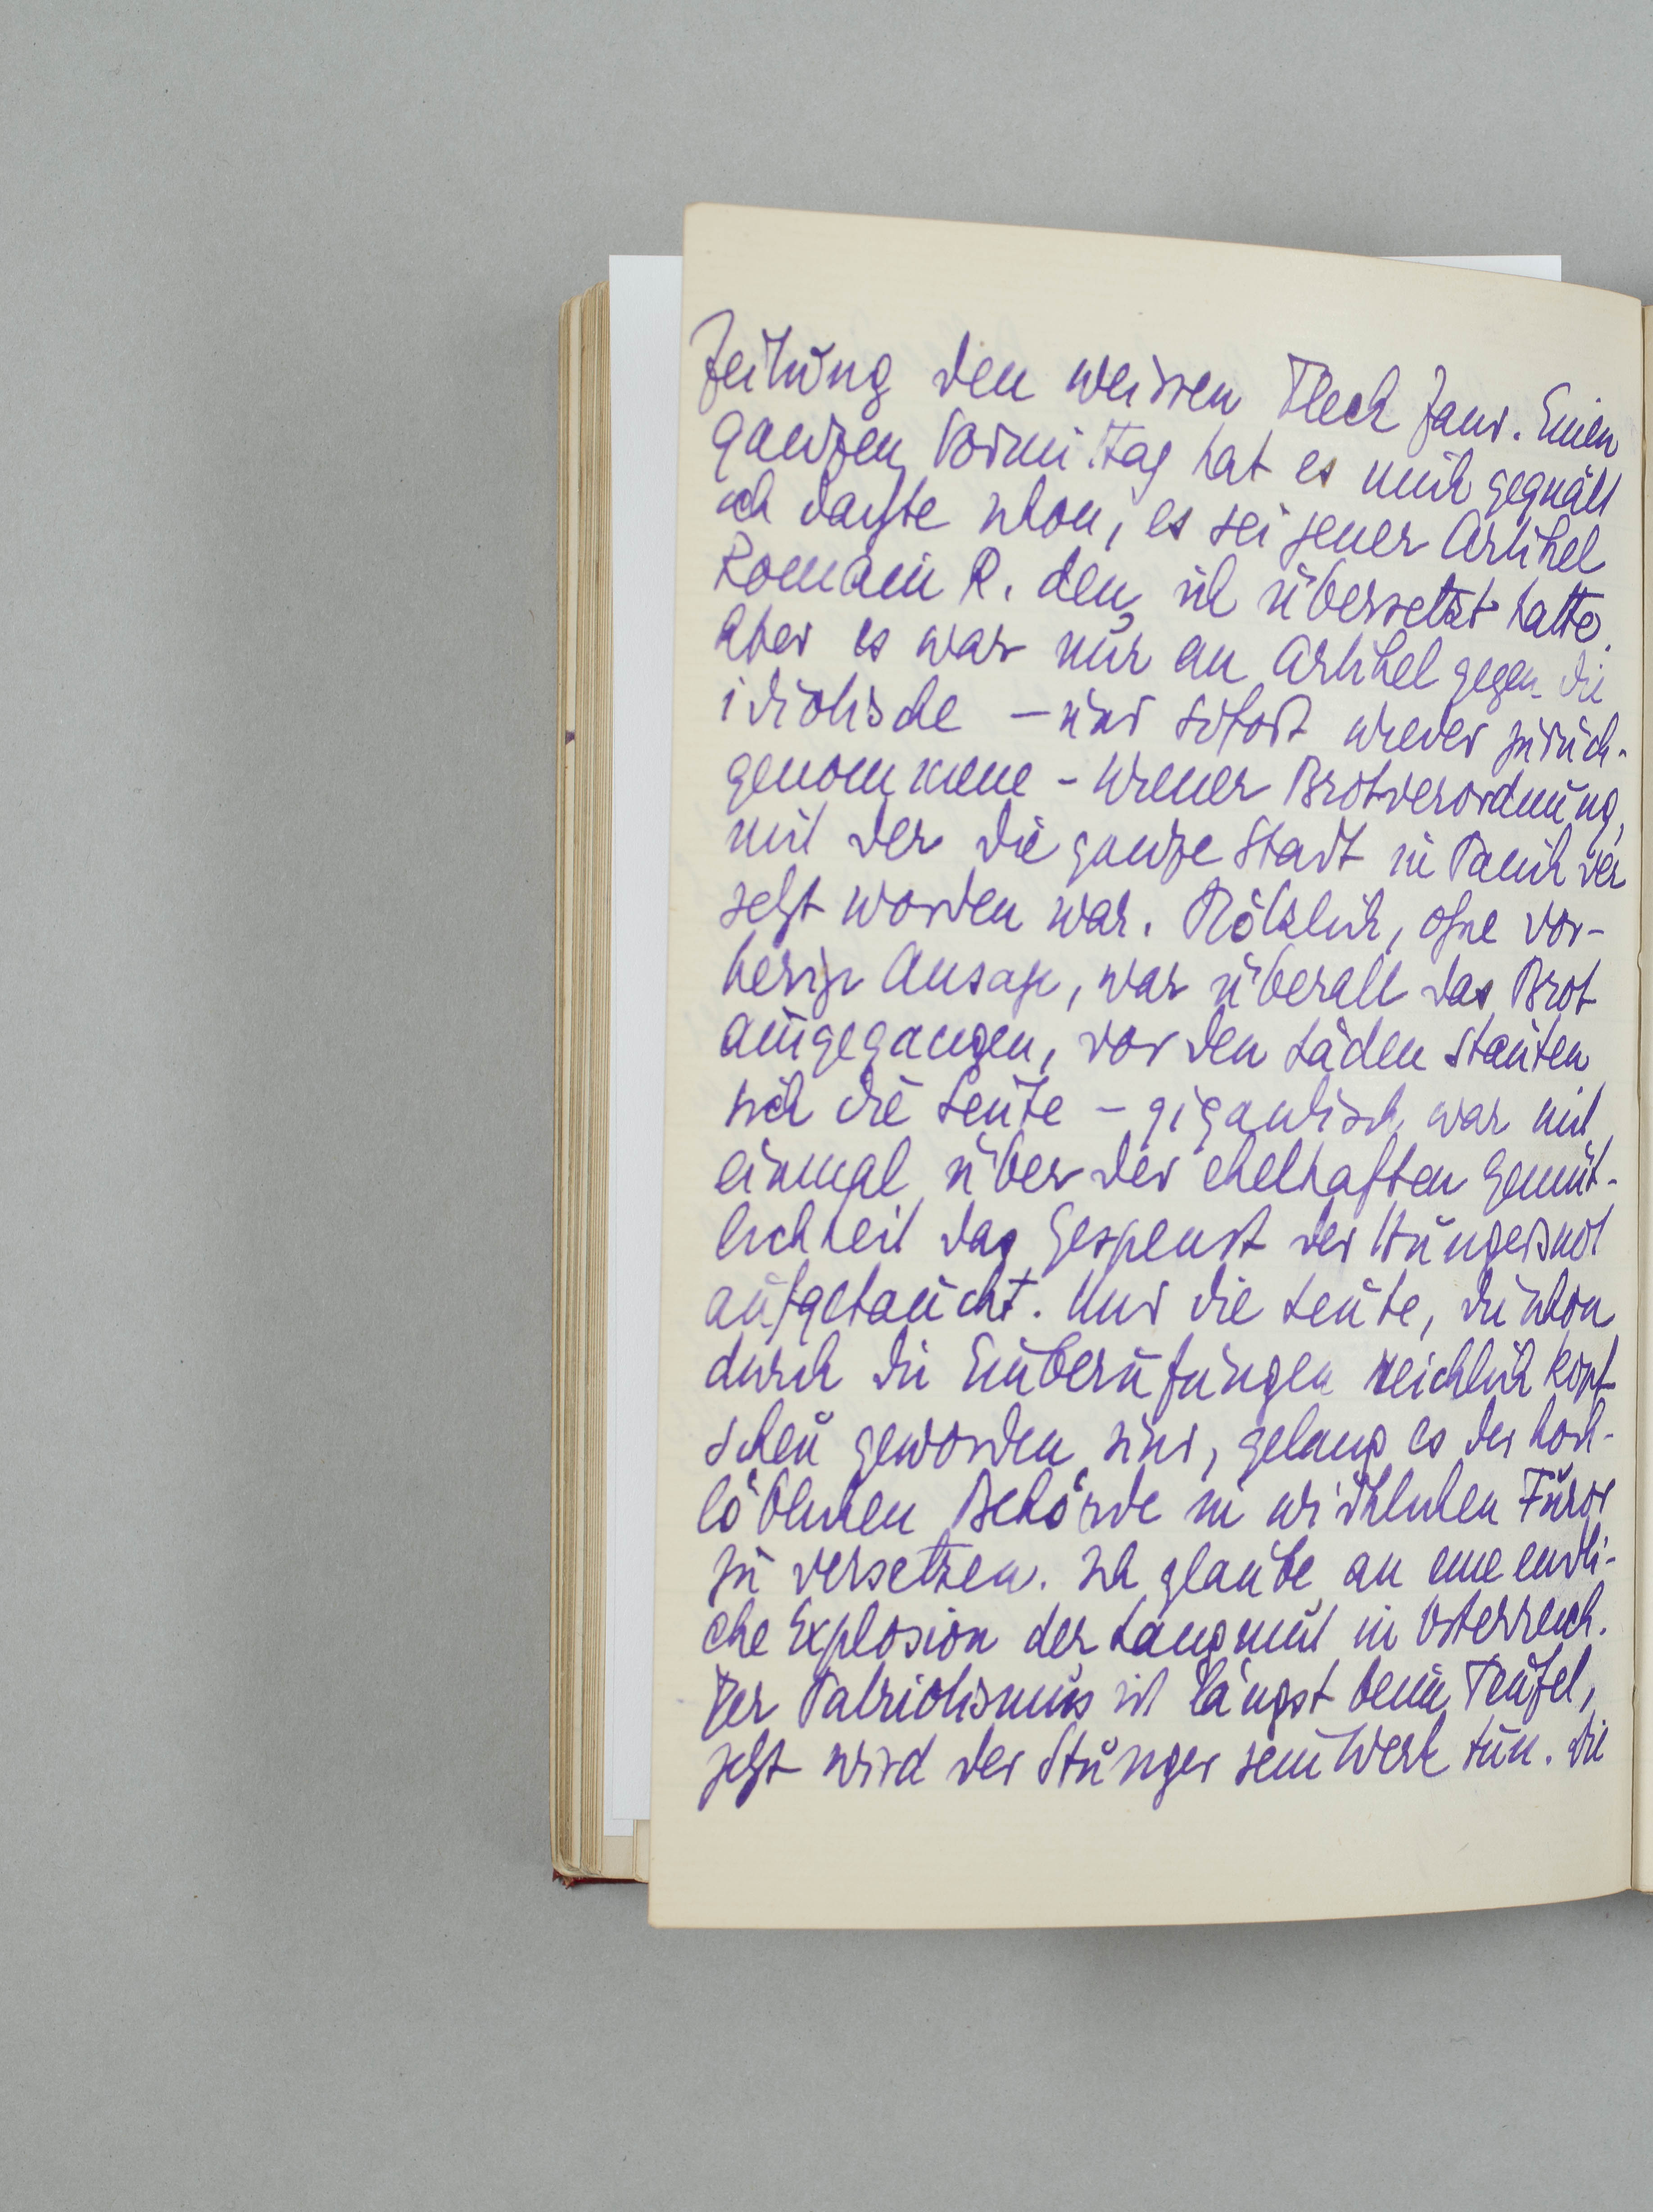 Zeitung den weissen Fleck fand. Einen
ganzen Vormittag hat es mich gequält
ich dachte schon, es sei jener Artikel
Romain R. den ich übersetzt hatte.
Aber es war nur ein Artikel gegen die
idiotische – und sofort wieder zurück-
genommene – Wiener Brotverordnung,
mit der die ganze Stadt in Panik ver
setzt worden war. Plötzlich, ohne vor-
herige Ansage, war überall das Brot
ausgegangen, vor den Läden stauten
sich die Leute – gigantisch war mit
einmal über der ekelhaften Gemüt-
lichkeit das Gespenst der Hungersnot
aufgetaucht. Und die Leute, die schon
durch die Einberufungen reichlich kopf
scheu geworden sind, gelang es der hoch-
löblichen Behörde in wirklichen Furor
zu versetzen. Ich glaube an eine endli-
che Explosion der Langmut in Österreich.
Der Patriotismus ist längst beim Teufel,
jetzt wird der Hunger sein Werk tun. Die